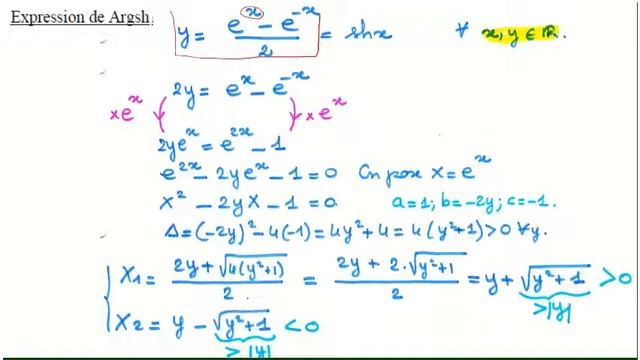 Expression de Argsh
y = (e^x − e^−x)/2 = shx ∀ x, y ∈ ℝ.
2y = e^x − e^−x
×e^x ×e^x
2ye^x = e^2x − 1
e^2x − 2ye^x − 1 = 0 On pose X = e^x
X² − 2yX − 1 = 0 a=1; b=−2y; c=−1.
Δ = (−2y)² − 4(−1) = 4y² + 4 = 4(y²+1) > 0 ∀y.
X₁ = (2y + √(4(y²+1)))/2 = (2y + 2.√(y²+1))/2 = y + √(y²+1) > 0
>|y|
X₂ = y − √(y²+1) < 0
>|y|